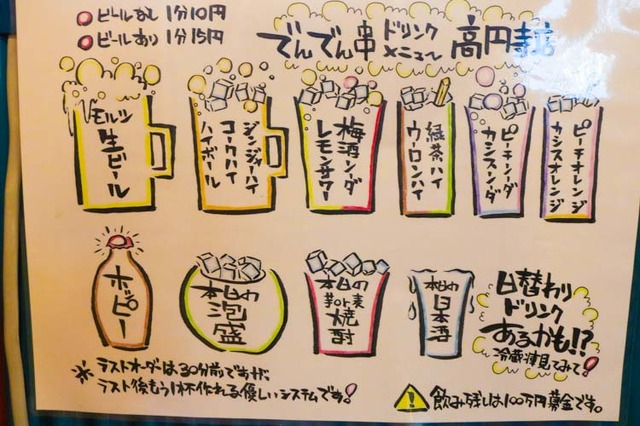 ビールなし 1分10円
ビールあり 1分15円
でんでん串 ドリンクメニュー 高円寺店
モルツ
生ビール
ジンジャーハイ
コークハイ
ハイボール
梅酒ソーダ
レモンサワー
緑茶ハイ
ウーロンハイ
ピーチソーダ
カシスソーダ
ピーチオレンジ
カシスオレンジ
ホッピー
本日の
泡盛
本日の
芋or麦
焼酎
本日の
日本酒
日替わり
ドリンク
あるかも!?
冷蔵庫見てみて!
※ラストオーダーは30分前ですが、
ラスト後もう1杯作れる優しいシステムです!
飲み残しは100万円募金です。